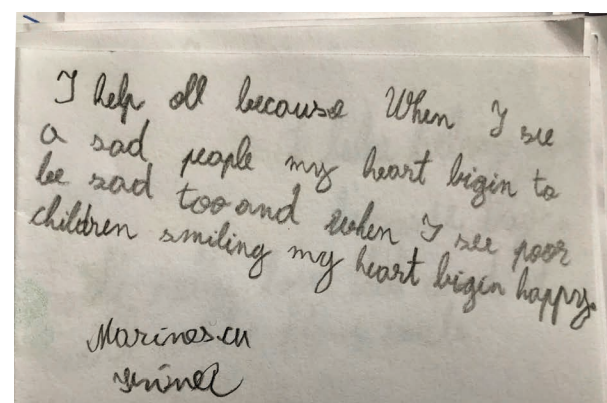 I help all because When I see
a sad people my heart bigin to
be sad too and when I see poor
children smiling my heart bigin happy.
Marinescu